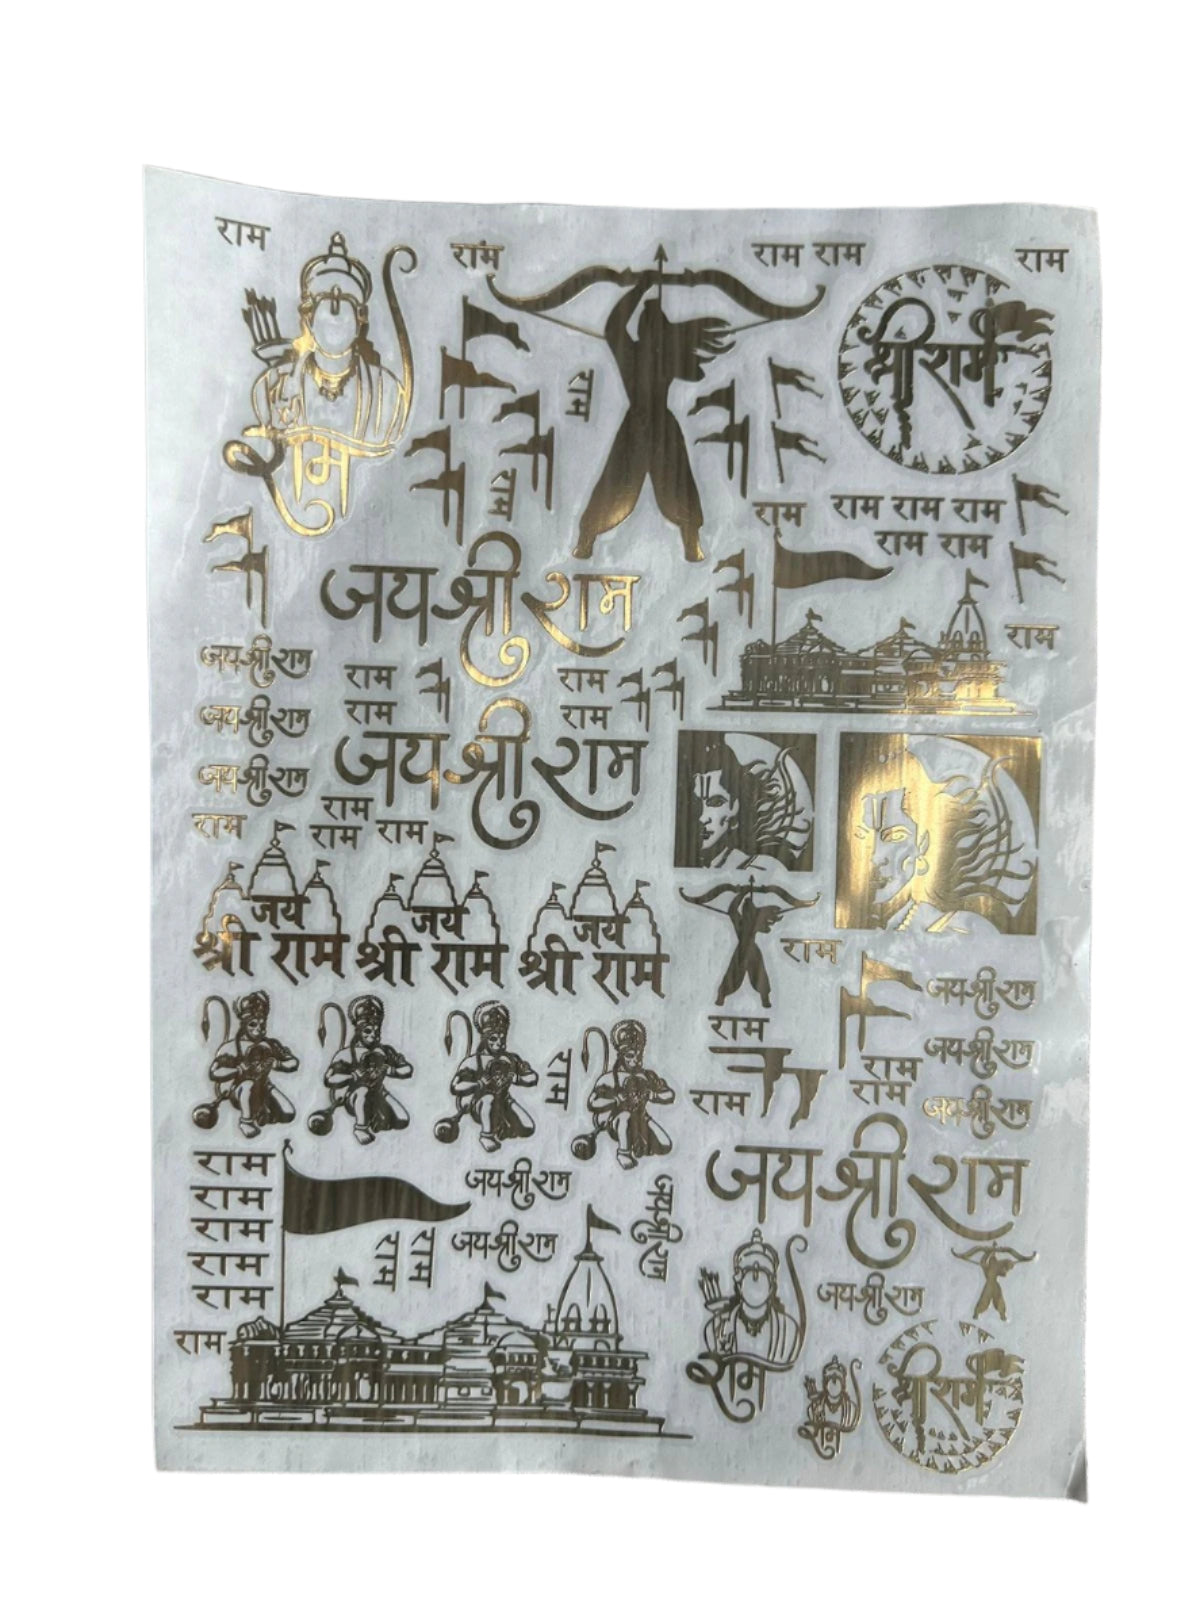 राम
राम
राम राम
राम
श्री राम
राम
राम
राम
राम
राम राम राम
राम राम
जय श्री राम
राम
जय श्री राम
राम
राम
जय श्री राम
राम
राम
जय श्री राम
जय श्री राम
राम
राम
राम राम
जय
श्री राम
जय
श्री राम
जय
श्री राम
राम
राम
जय श्री राम
राम
राम
जय श्री राम
राम
राम
जय श्री राम
राम
राम
राम
राम
राम
राम
जय श्री राम
जय श्री राम
राम
राम
जय श्री राम
जय श्री राम
राम
जय श्री राम
राम
राम
श्री राम